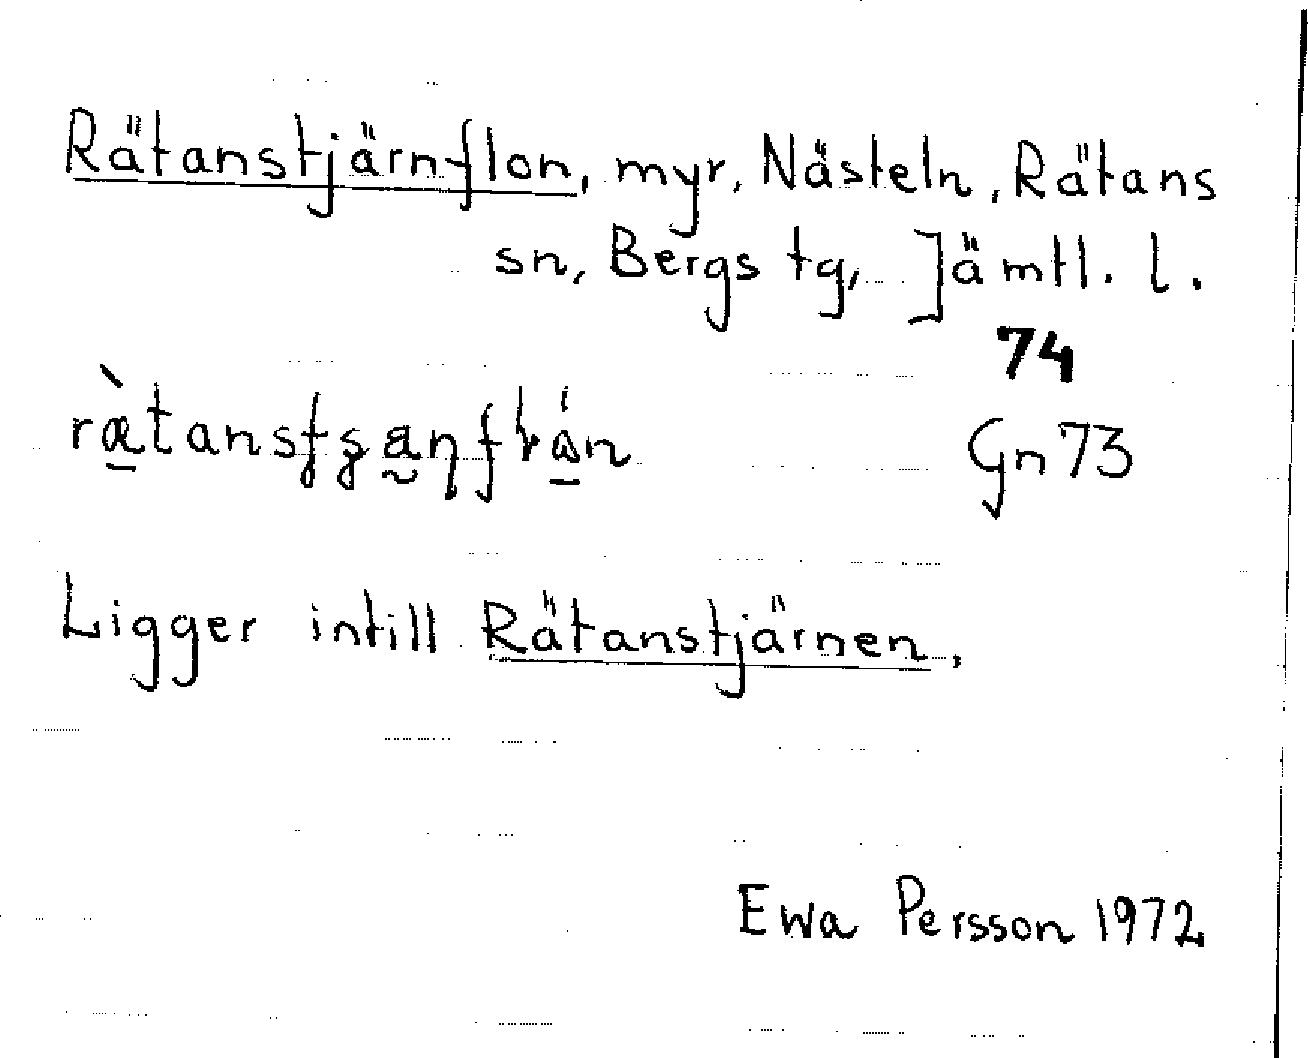 Rätanstjärnflon, myr, Nästeln, Rätans
sn, Bergs tg, Jämtl. l.
74
Gn 73
Ligger intill Rätanstjärnen.
Ewa Persson 1972